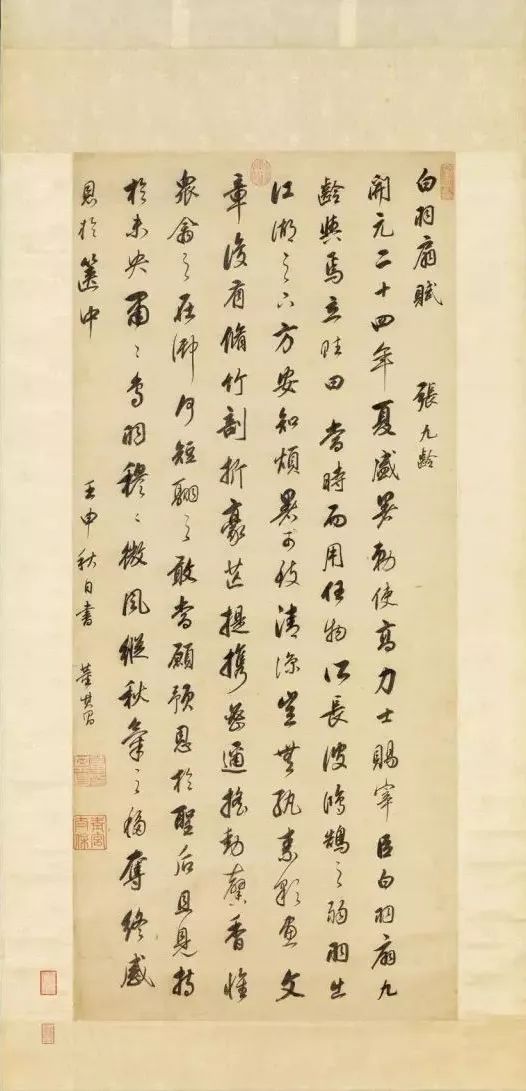 白羽扇賦 張九齡
開元二十四年夏盛暑勅使高力士賜宰臣白羽扇九
齡與焉立賦曰 當時而用任物所長彼鴻鵠之弱羽出
江湖之下方安知煩暑可致清涼豈無紈素彩畫文
章復有脩竹剖析豪芒提攜密邇搖動馨香惟
衆禽之在御何短翮之敢當願預恩於聖后且見持
於未央肅〻鳥羽穆〻微風縱秋氣之移奪終感
恩於篋中 壬申秋日書 董其昌